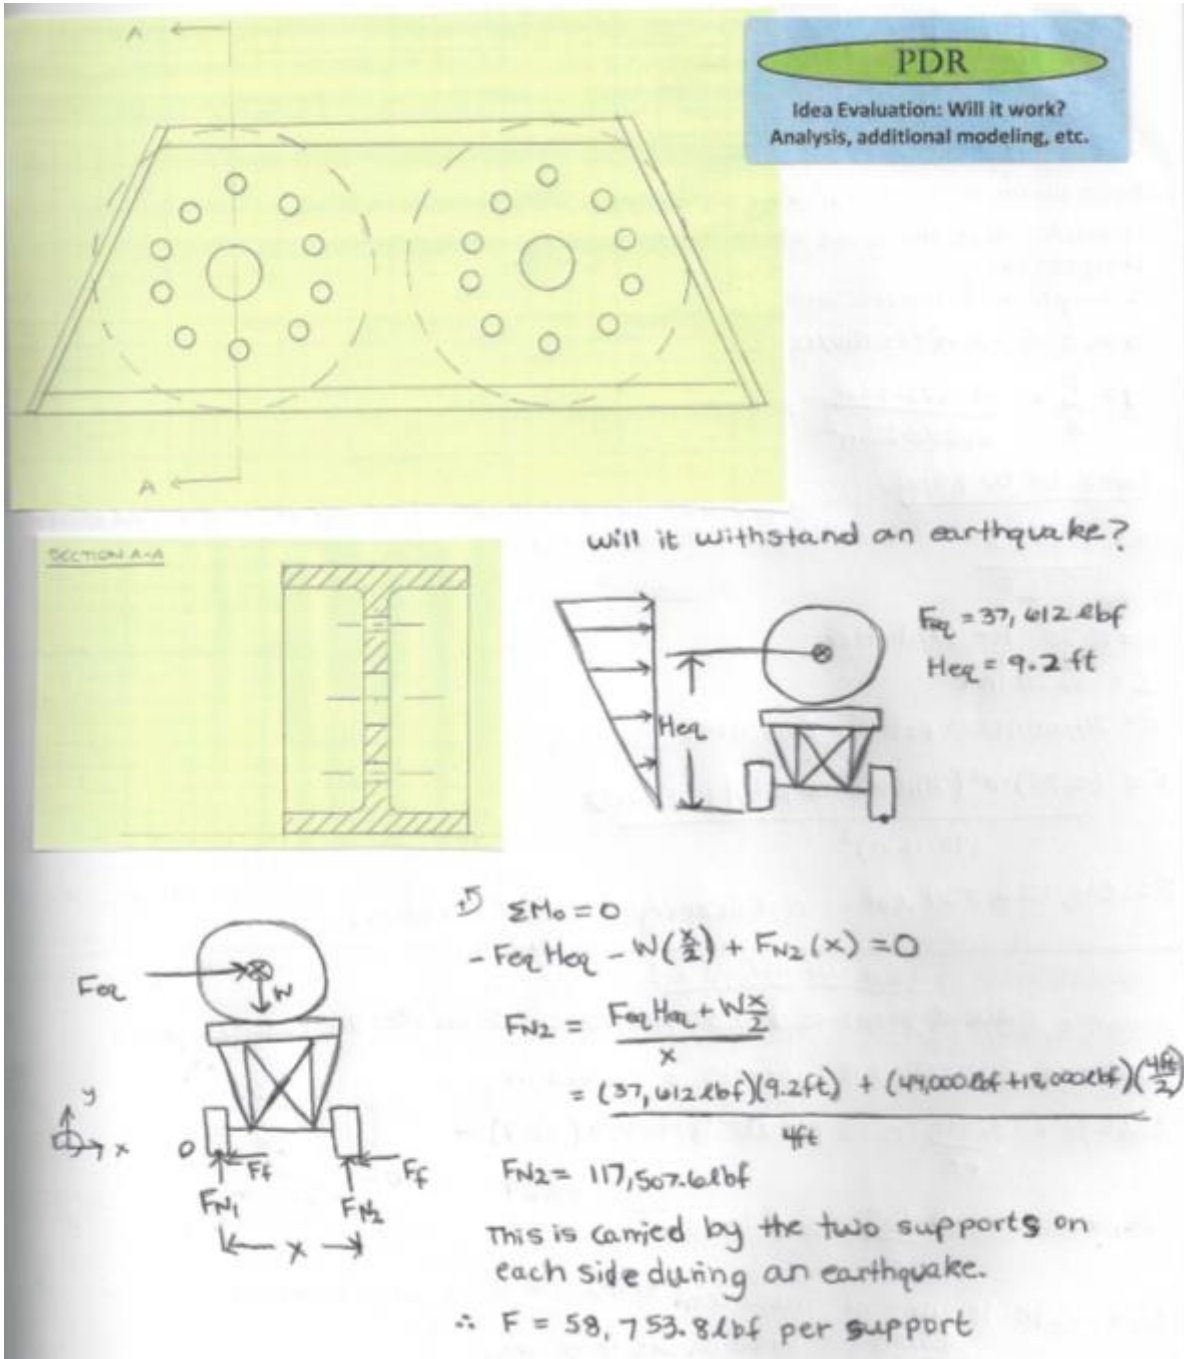 A
PDR
Idea Evaluation: Will it work?
Analysis, additional modeling, etc.
A
SECTION A-A
will it withstand an earthquake?
Feq = 37,612 lbf
Heq = 9.2 ft
Heq
ΣMo = 0
- FeqHeq - W(x/2) + FN2(x) = 0
Feq
W
FN2 = FeqHeq + Wx/2
x
= (37,612 lbf)(9.2ft) + (44,000lbf+18,000lbf)(4ft/2)
4ft
y
x
O
Ff
Ff
FN1
FN2
x
FN2 = 117,507.6lbf
This is carried by the two supports on
each side during an earthquake.
∴ F = 58,753.8lbf per support